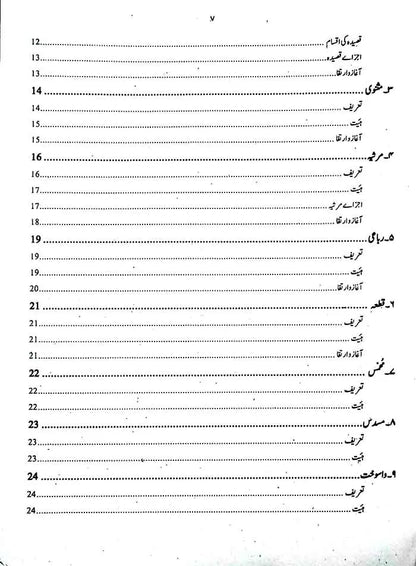 ۷
قصیدہ کی اقسام ........ 12
اجزائے قصیدہ ........ 13
آغاز و ارتقا ........ 13
۳۔ مثنوی ........ 14
تعریف ........ 14
ہیئت ........ 15
آغاز و ارتقا ........ 15
۴۔ مرثیہ ........ 16
تعریف ........ 16
ہیئت ........ 17
اجزائے مرثیہ ........ 17
آغاز و ارتقا ........ 18
۵۔ رباعی ........ 19
تعریف ........ 19
ہیئت ........ 19
آغاز و ارتقا ........ 20
۶۔ قطعہ ........ 21
تعریف ........ 21
ہیئت ........ 21
آغاز و ارتقا ........ 21
۷۔ مخمس ........ 22
تعریف ........ 22
ہیئت ........ 22
۸۔ مسدس ........ 23
تعریف ........ 23
ہیئت ........ 23
۹۔ واسوخت ........ 24
تعریف ........ 24
ہیئت ........ 24